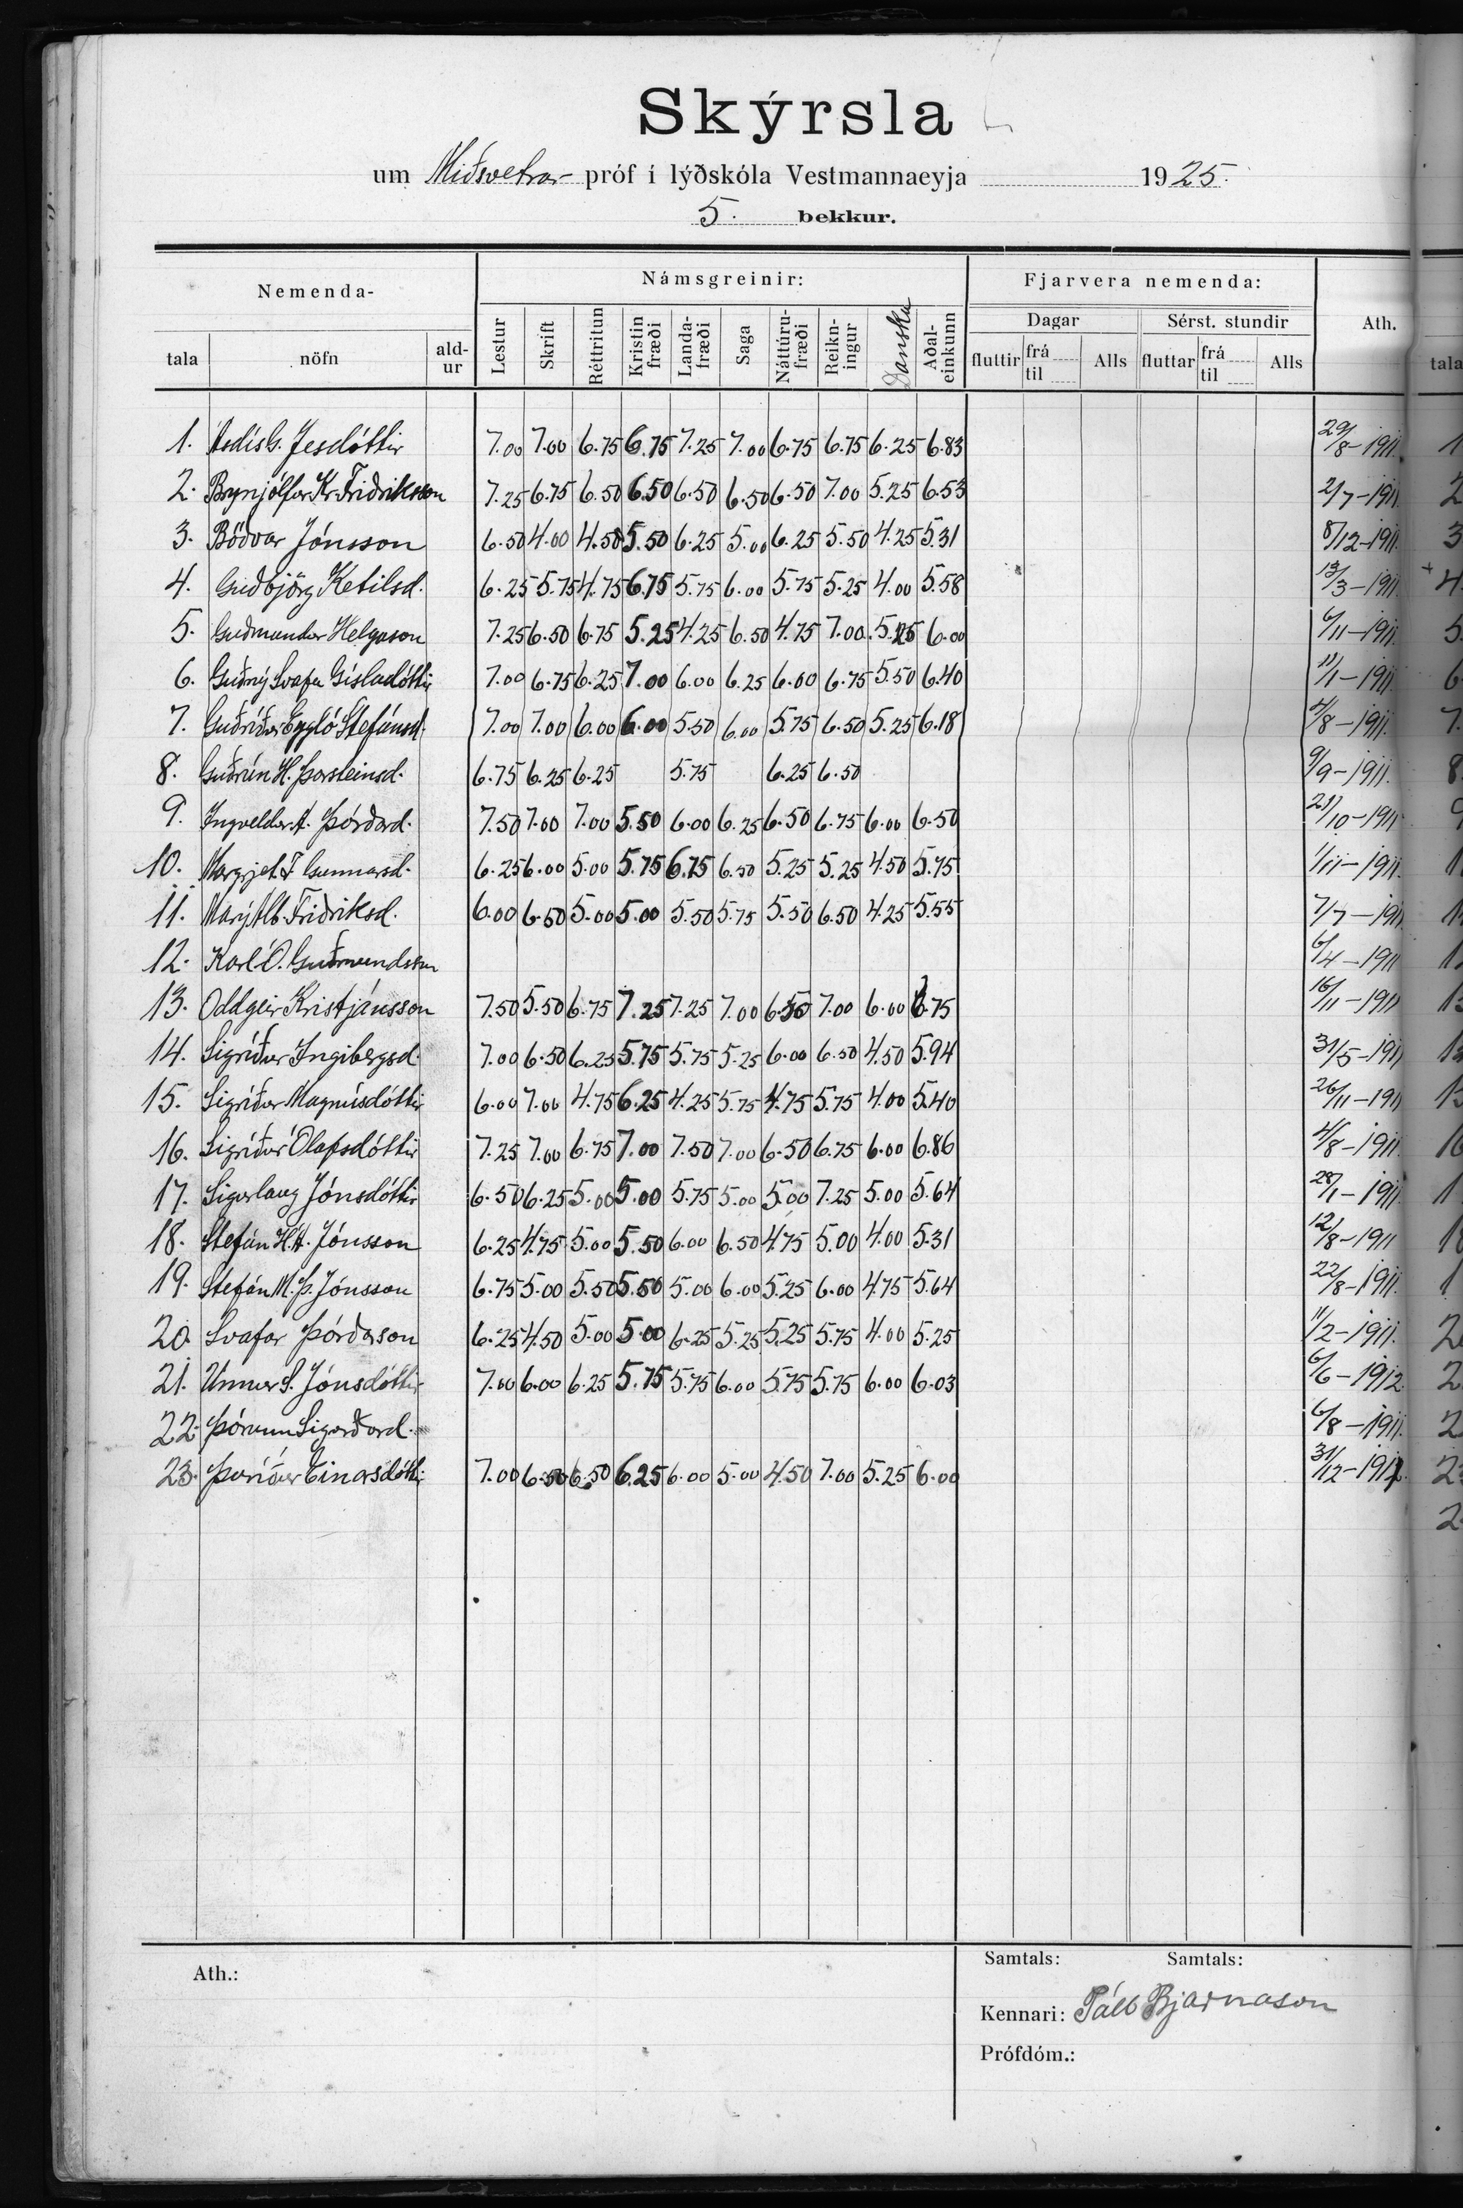 Skýrsla
um Miðsvetrar- próf í lýðskóla Vestmannaeyja 1925.
5. bekkur.
Nemenda- Námsgreinir: Fjarvera nemenda: Ath.
Dagar Sérst. stundir
tala nöfn ald-ur Lestur Skrift Réttritun Kristin fræði Landa-fræði Saga Náttúru-fræði Reikn-ingur Danska Aðal-einkunn fluttir frá til Alls fluttar frá til Alls tala
1. Ásdís G. Jesdóttir 7.00 7.00 6.75 6.75 7.25 7.00 6.75 6.75 6.25 6.83 29/8-1911.
2. Brynjólfur Kr. Friðriksson 7.25 6.75 6.50 6.50 6.50 6.50 6.50 7.00 5.25 6.53 2/7-1911
3. Böðvar Jónsson 6.50 4.00 4.50 5.50 6.25 5.00 6.25 5.50 4.25 5.31 8/12-1911.
4. Guðbjörg Ketilsd. 6.25 5.75 4.75 6.75 5.75 6.00 5.75 5.25 4.00 5.58 13/3-1911
5. Guðmundur Helgason 7.25 6.50 6.75 5.25 4.25 6.50 4.75 7.00 5.25 6.00 6/11-1911
6. Guðný Svafa Gísladóttir 7.00 6.75 6.25 7.00 6.00 6.25 6.00 6.75 5.50 6.40 11/1-1911
7. Guðríður Eygló Stefánsd. 7.00 7.00 6.00 6.00 5.50 6.00 5.75 6.50 5.25 6.18 4/8-1911.
8. Guðrún H. Þorsteinsd. 6.75 6.25 6.25 5.75 6.25 6.50 9/9-1911.
9. Ingveldur A. Þórðard. 7.50 7.00 7.00 5.50 6.00 6.25 6.50 6.75 6.00 6.50 21/10-1911
10. Margrjet F. Gunnarsd. 6.25 6.00 5.00 5.75 6.75 6.50 5.25 5.25 4.50 5.75 1/11-1911
11. Marý Alb. Friðriksd. 6.00 6.50 5.00 5.00 5.50 5.75 5.50 6.50 4.25 5.55 7/7-1911
12. Karl Ó. Guðmundsson 6/4-1911
13. Oddgeir Kristjánsson 7.50 5.50 6.75 7.25 7.25 7.00 6.50 7.00 6.00 6.75 16/11-1911
14. Sigríður Ingibergsd. 7.00 6.50 6.25 5.75 5.75 5.25 6.00 6.50 4.50 5.94 31/5-1911
15. Sigríður Magnúsdóttir 6.00 7.00 4.75 6.25 4.25 5.75 4.75 5.75 4.00 5.40 26/11-1911
16. Sigríður Ólafsdóttir 7.25 7.00 6.75 7.00 7.50 7.00 6.50 6.75 6.00 6.86 4/8-1911
17. Sigurlaug Jónsdóttir 6.50 6.25 5.00 5.00 5.75 5.00 5.00 7.25 5.00 5.64 28/1-1911
18. Stefán H.A. Jónsson 6.25 4.75 5.00 5.50 6.00 6.50 4.75 5.00 4.00 5.31 12/8-1911
19. Stefán M. Þ. Jónsson 6.75 5.00 5.50 5.50 5.00 6.00 5.25 6.00 4.75 5.64 22/8-1911.
20. Svafar Þórðarson 6.25 4.50 5.00 5.00 6.25 5.25 5.25 5.75 4.00 5.25 11/2-1911.
21. Unnur S. Jónsdóttir 7.00 6.00 6.25 5.75 5.75 6.00 5.75 5.75 6.00 6.03 6/6-1912
22. Þórunn Sigurðard. 6/8-1911.
23. Þuríður Einarsdóttir 7.00 6.50 6.50 6.25 6.00 5.00 4.50 7.00 5.25 6.00 31/12-1912.
Ath.: Samtals: Samtals:
Kennari: Páll Bjarnason
Prófdóm.: